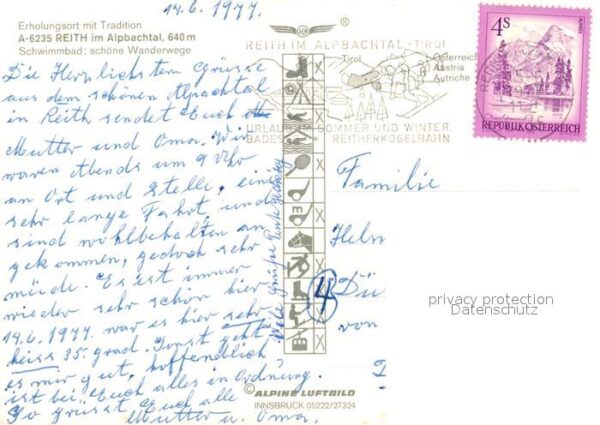 14.6.1977.
Erholungsort mit Tradition
A-6235 REITH im Alpbachtal, 640 m
Schwimmbad; schöne Wanderwege
Die Herzlichsten Grüsse
aus dem schönen Alpachtal
in Reith sendet Euch
Mutter und Oma. Wir
waren Abends um 9 Uhr
an Ort und Stelle, eine
sehr lange Fahrt, und
sind wohlbehalten an
gekommen, jedoch sehr
müde. Es ist immer
wieder sehr schön hier
14.6.1977. war es hier sehr
heiss 35 grad. Sonst geht
es mir gut, hoffendlich
ist bei Euch alles in Ordnung.
So grüsst Euch alle
Mutter u. Oma.
Viele Grüße
REITH IM ALPBACHTAL-TIROL
Tirol
Österreich
Austria
Autriche
URLAUB IM SOMMER UND WINTER
REITHERKOGELBAHN
4S
REPUBLIK ÖSTERREICH
Familie
Helm
4
Dü
von
privacy protection
Datenschutz
© ALPINE LUFTBILD
INNSBRUCK 05222/27324